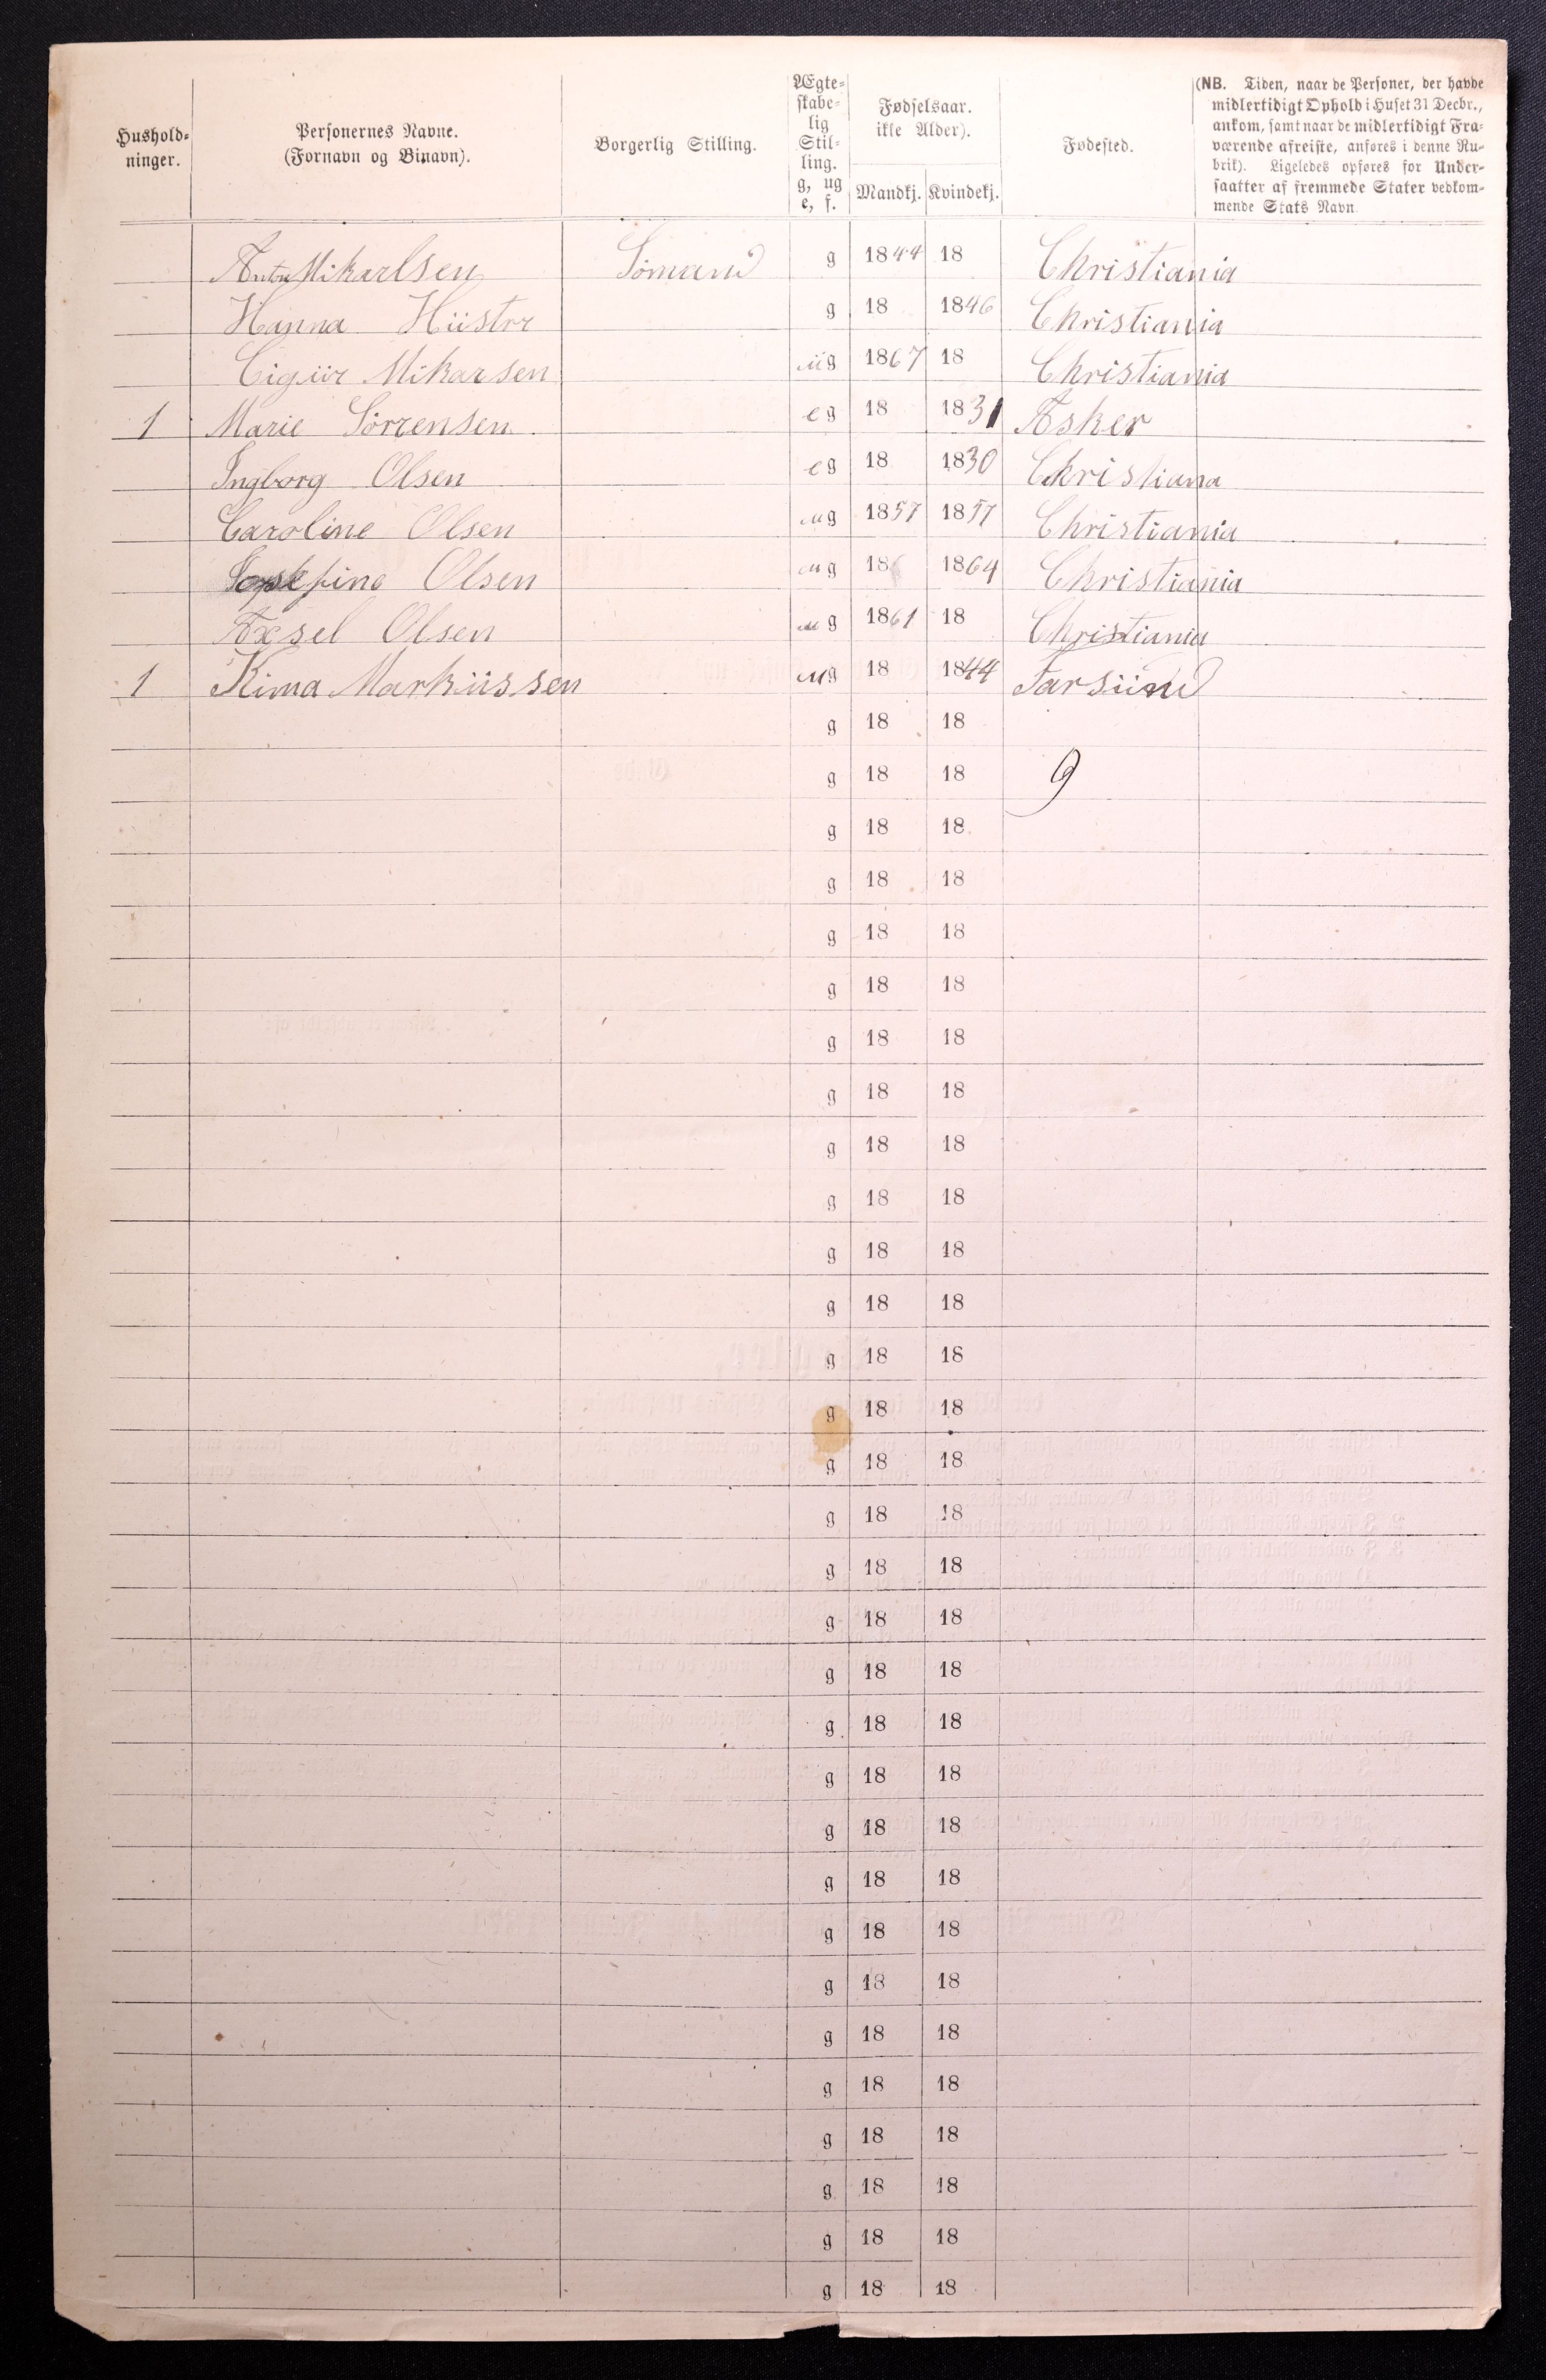 Hushold-
ninger.
Personernes Navne.
(Fornavn og Binavn).
Borgerlig Stilling.
Ægte-
skabe-
lig
Stil-
ling.
g, ug
e, f.
Fødselsaar.
ikke Alder).
Mandkj. Kvindekj.
Fødested.
(NB. Tiden, naar de Personer, der havde
midlertidigt Ophold i Huset 31 Decbr.,
ankom, samt naar de midlertidigt Fra-
værende afreiste, anføres i denne Ru-
brik). Ligeledes opføres for Under-
saatter af fremmede Stater vedkom-
mende Stats Navn.
Anton Mikarlsen Sömand g 1844 18 Christiania
Hanna Hüstrr g 18 1846 Christiania
Mikarsen üg 1867 18 Christiania
1 Marie Sörrensen eg 18 1831 Asker
Ingborg Olsen eg 18 1830 Christiana
Caroline Olsen ug 1857 1857 Christiania
Olsen ug 18 1864 Christiania
Axsel Olsen ug 1861 18 Christiania
1 Kima Marküssen ug 18 1844 Farsünd
g 18 18
g 18 18 9
g 18 18
g 18 18
g 18 18
g 18 18
g 18 18
g 18 18
g 18 18
g 18 18
g 18 18
g 18 18
g 18 18
g 18 18
g 18 18
g 18 18
g 18 18
g 18 18
g 18 18
g 18 18
g 18 18
g 18 18
g 18 18
g 18 18
g 18 18
g 18 18
g 18 18
g 18 18
g 18 18
g 18 18
g 18 18